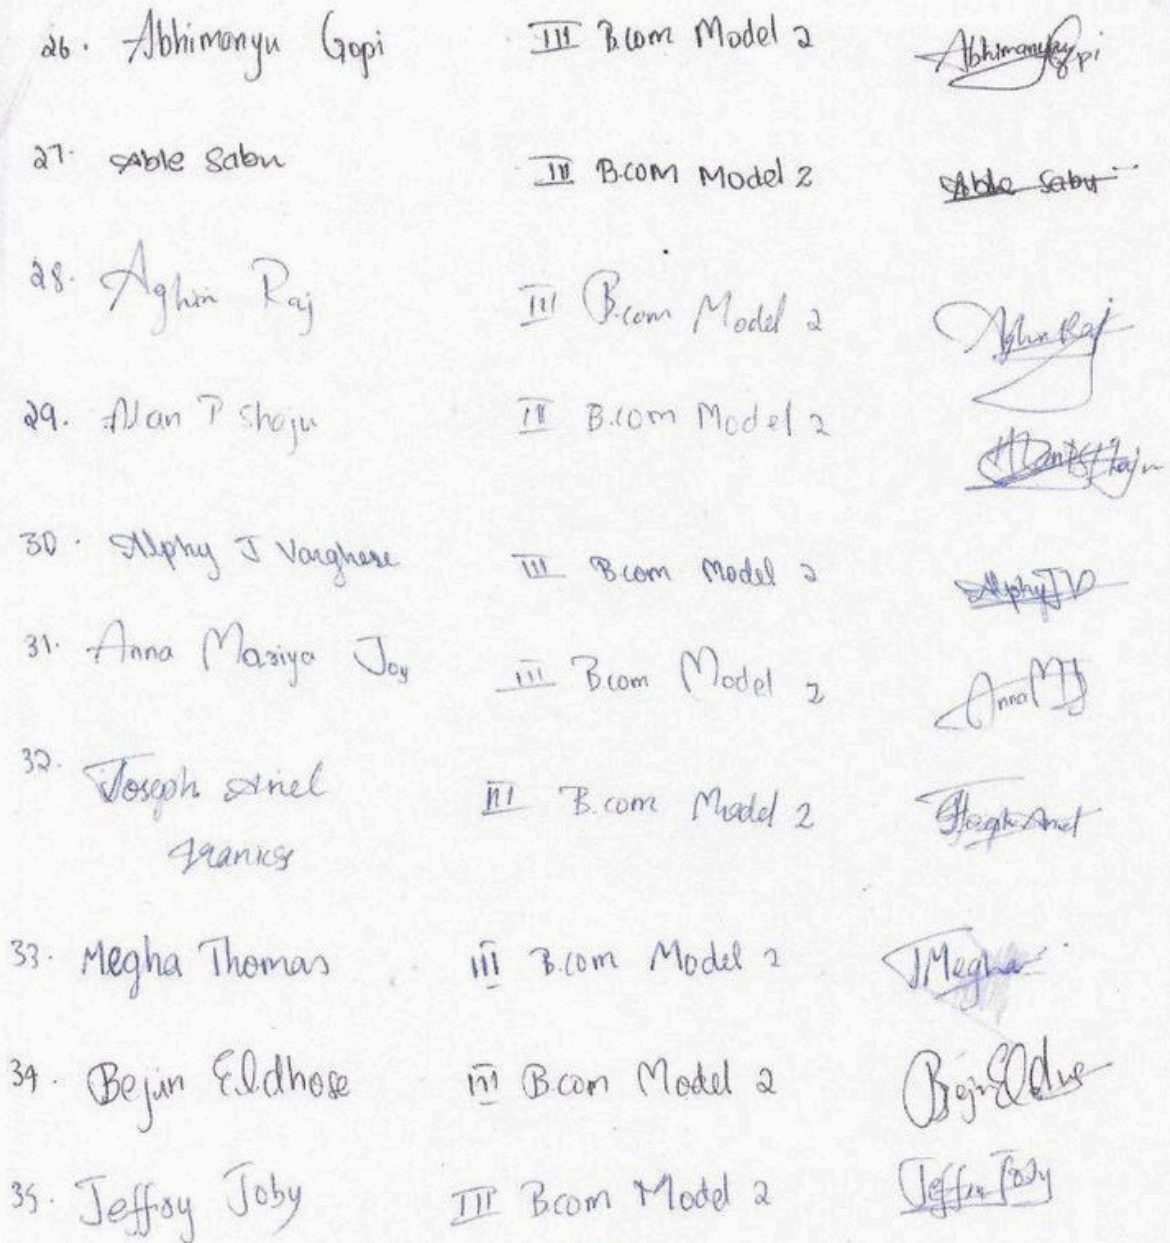 26. Abhimanyu Gopi III B.com Model 2 Abhimanyu Gopi
27. Able Sabu III B.COM Model 2 Able Sabu
28. Aghin Raj III B.com Model 2 Aghin Raj
29. Alan P Shaju III B.com Model 2
30. Alphy J Varghese III B.com Model 2 Alphy J V
31. Anna Mariya Joy III B.com Model 2 Anna M J
32. Joseph Amel III B.com Model 2
Francis
33. Megha Thomas III B.com Model 2 Megha
34. Bejin Eldhose III B.com Model 2
35. Jeffoy Joby III B.com Model 2